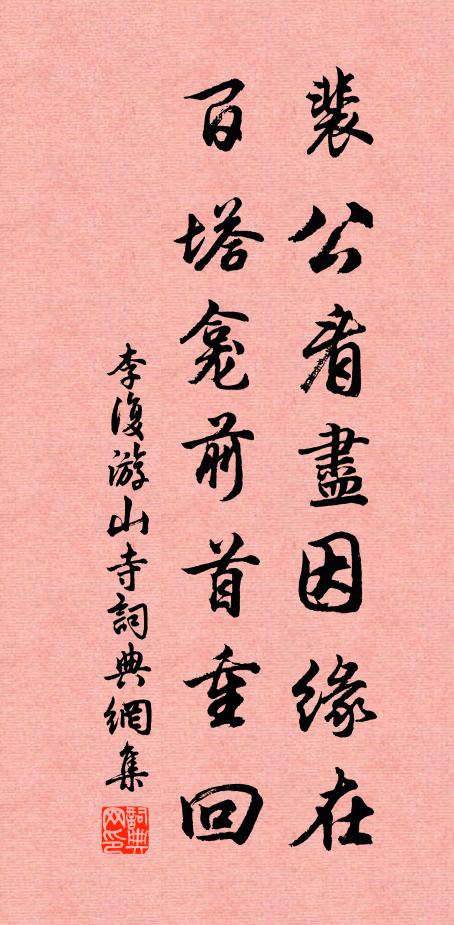 裴公看盡因緣在
百塔龕前首重回
李復游山寺詞典網集
詞典网印